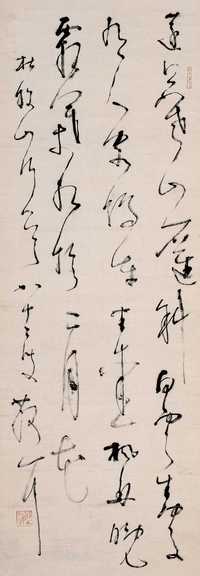 遠上寒山石徑斜白雲生處
有人家停車坐愛楓林晚
霜葉紅於二月花
杜牧山行 叟散耳